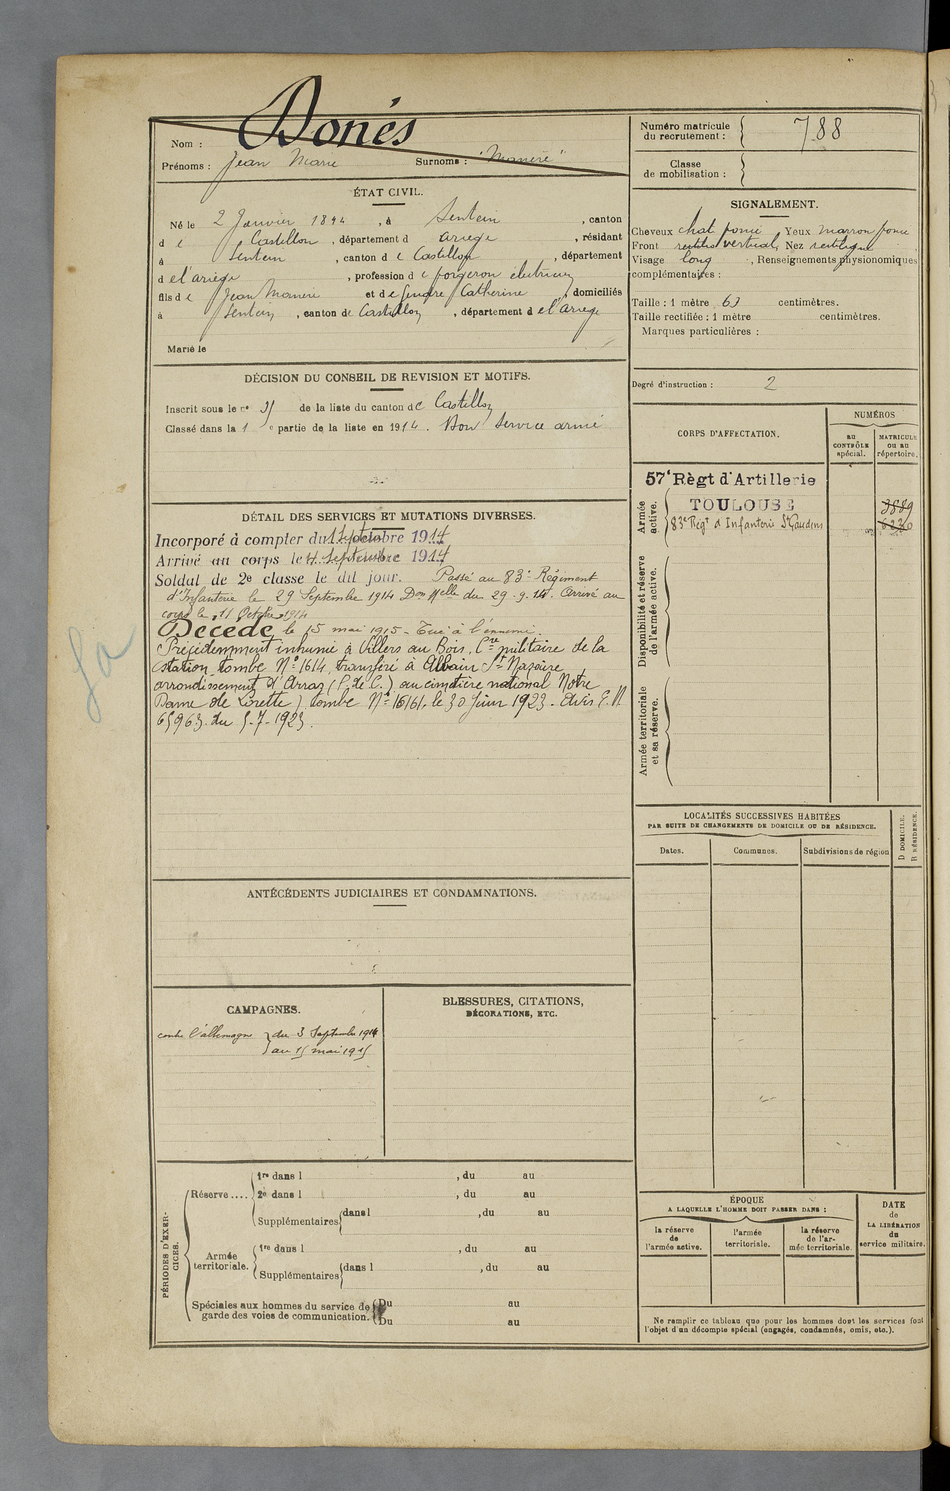 Donés
Nom :
Prénoms : Jean Marie Surnoms : "Maneré"
ÉTAT CIVIL.
Né le 2 Janvier 1894, à Sentein, canton
de Castillon, département d Ariege, résidant
à Sentein, canton de Castillon, département
de l'ariège, profession de forgeron électricien
fils de Jean Manere et de Catherine, domiciliés
à Sentein, canton de Castillon, département de l'Ariege
Marié le
DÉCISION DU CONSEIL DE REVISION ET MOTIFS.
Inscrit sous le n° de la liste du canton de Castillon
Classé dans la 1e partie de la liste en 1914. Bon service armé
DÉTAIL DES SERVICES ET MUTATIONS DIVERSES.
Incorporé à compter du Septembre 1914
Arrivé au corps le 4 Septembre 1914
Soldat de 2e classe le dit jour. Passé au 83e Régiment
d'Infanterie le 29 Septembre 1914 Don Melle du 29-9-14. Arrivé au
corps le 11 Octobre 1914
Décédé le 15 mai 1915 - Tué à l'ennemi.
Précédemment inhumé à Villers au Bois, Cre militaire de la
station tombe N° 1614, transféré à Ablain St Nazaire
arrondissement d'Arras (P. de C.) au cimetière national Notre
Dame de Lorette) tombe N° 16161, le 30 Juin 1923 - Avis E.N
65963 du 5-7-1923.
ANTÉCÉDENTS JUDICIAIRES ET CONDAMNATIONS.
CAMPAGNES.
contre l'allemagne du 3 Septembre 1914
au 15 mai 1915
BLESSURES, CITATIONS,
DÉCORATIONS, ETC.
PÉRIODES D'EXERCICES.
Réserve .... 1re dans l , du au
2e dans l , du au
Supplémentaires dans l , du au
Armée territoriale. 1re dans l , du au
Supplémentaires dans l , du au
Spéciales aux hommes du service de garde des voies de communication. Du au
Du au
Numéro matricule du recrutement : 788
Classe de mobilisation :
SIGNALEMENT.
Cheveux chat foncé Yeux marron foncé
Front vertical, Nez rectiligne
Visage long, Renseignements physionomiques
complémentaires :
Taille : 1 mètre 63 centimètres.
Taille rectifiée : 1 mètre centimètres.
Marques particulières :
Degré d'instruction : 2
CORPS D'AFFECTATION.
NUMÉROS
AU CONTRÔLE spécial.
MATRICULE OU AU répertoire.
Armée active.
57e Règt d'Artillerie
TOULOUSE 3889
83e Regt d'Infanterie St Gaudens 6236
Disponibilité et réserve de l'armée active.
Armée territoriale et sa réserve.
LOCALITÉS SUCCESSIVES HABITÉES
PAR SUITE DE CHANGEMENTS DE DOMICILE OU DE RÉSIDENCE.
Dates. Communes. Subdivisions de région
D DOMICILE.
R RÉSIDENCE.
ÉPOQUE
A LAQUELLE L'HOMME DOIT PASSER DANS :
la réserve de l'armée active.
l'armée territoriale.
la réserve de l'armée territoriale.
DATE de LA LIBÉRATION du service militaire.
Ne remplir ce tableau que pour les hommes dont les services font
l'objet d'un décompte spécial (engagés, condamnés, omis, etc.).